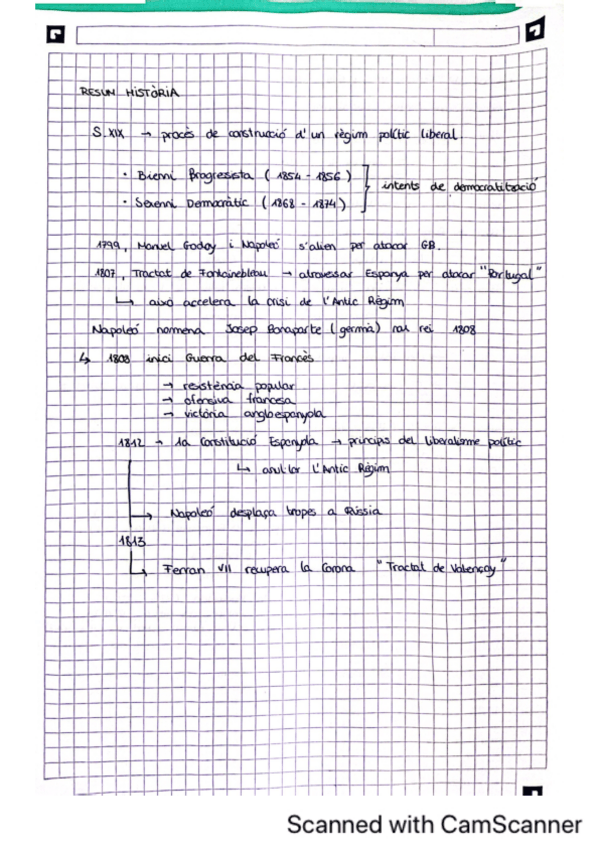 RESUM HISTÒRIA
S.XIX → procés de construcció d'un règim polític liberal.
· Bienni Progresista (1854 - 1856)
intents de democratització
· Sexenni Democràtic (1868 - 1874)
1799, Manuel Godoy i Napoleó s'alien per atacar GB.
1807, Tractat de Fontainebleau → atravessar Espanya per atacar "Portugal"
↳ això accelera la crisi de l'Antic Règim
Napoleó nomena Josep Bonaparte (germà) nou rei 1808
↳ 1808 inici Guerra del Francès
→ resistència popular
→ ofensiva francesa
→ victòria angloespanyola
1812 → 1a Constitució Espanyola → principis del liberalisme polític
↳ anul·lar l'Antic Règim
→ Napoleó desplaça tropes a Rússia
1813
↳ Ferran VII recupera la Corona "Tractat de Valençay"
Scanned with CamScanner